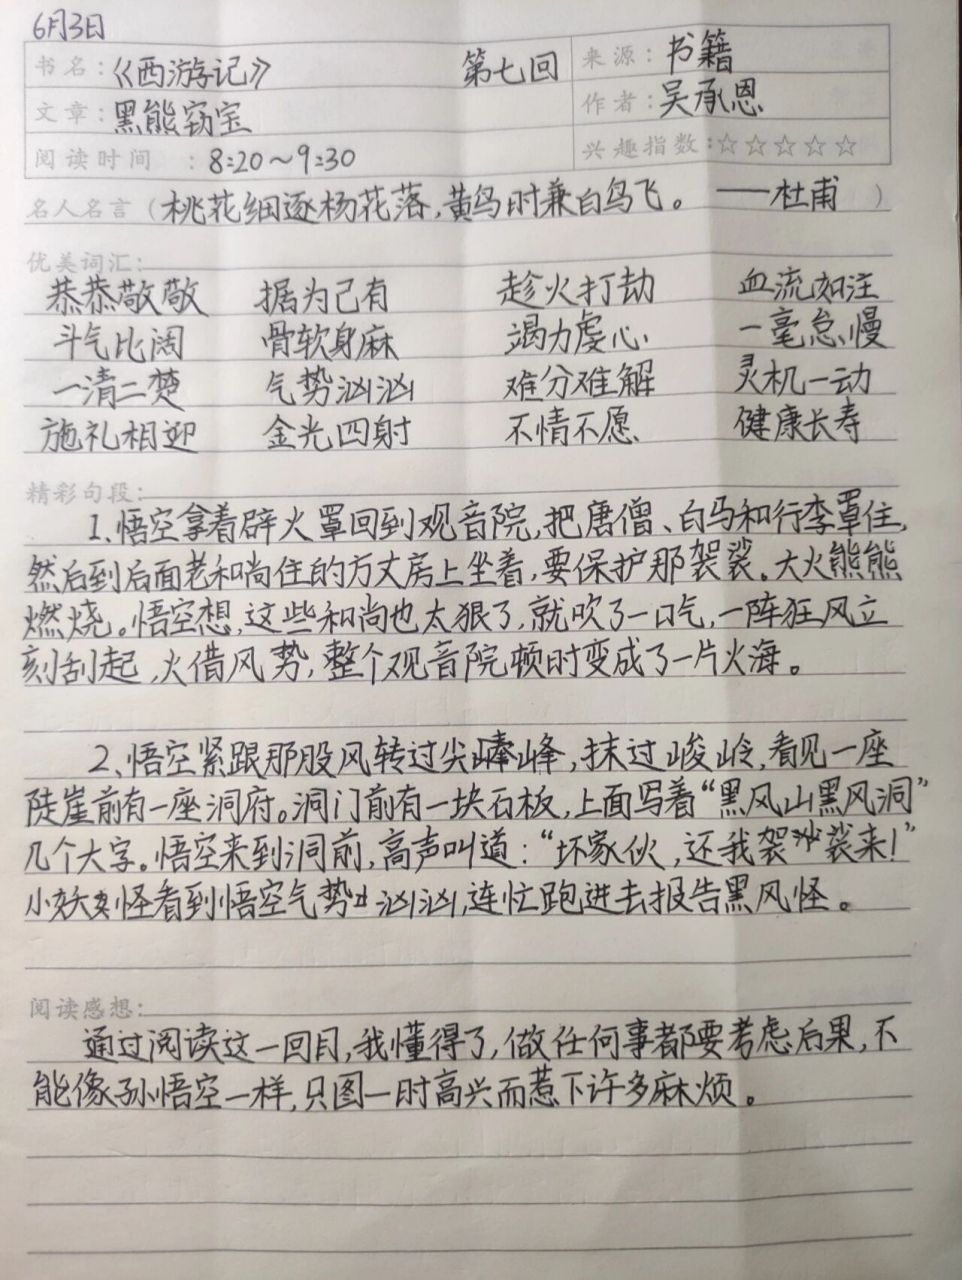 6月3日
书名：《西游记》 第七回 来源：书籍
文章：黑熊窃宝 作者：吴承恩
阅读时间：8:20～9:30 兴趣指数：☆☆☆☆☆
名人名言（桃花细逐杨花落，黄鸟时兼白鸟飞。——杜甫）
优美词汇：
恭恭敬敬 据为己有 趁火打劫 血流如注
斗气比阔 骨软身麻 竭力虔心 一毫怠慢
一清二楚 气势汹汹 难分难解 灵机一动
施礼相迎 金光四射 不情不愿 健康长寿
精彩句段：
1、悟空拿着辟火罩回到观音院，把唐僧、白马和行李罩住，
然后到后面老和尚住的方丈房上坐着，要保护那袈裟。大火熊熊
燃烧。悟空想，这些和尚也太狠了，就吹了一口气，一阵狂风立
刻刮起，火借风势，整个观音院顿时变成了一片火海。
2、悟空紧跟那股风转过尖峰，抹过峻岭，看见一座
陡崖前有一座洞府。洞门前有一块石板，上面写着“黑风山黑风洞”
几个大字。悟空来到洞前，高声叫道：“坏家伙，还我袈裟来！”
小妖怪看到悟空气势汹汹，连忙跑进去报告黑风怪。
阅读感想：
通过阅读这一回目，我懂得了，做任何事都要考虑后果，不
能像孙悟空一样，只图一时高兴而惹下许多麻烦。